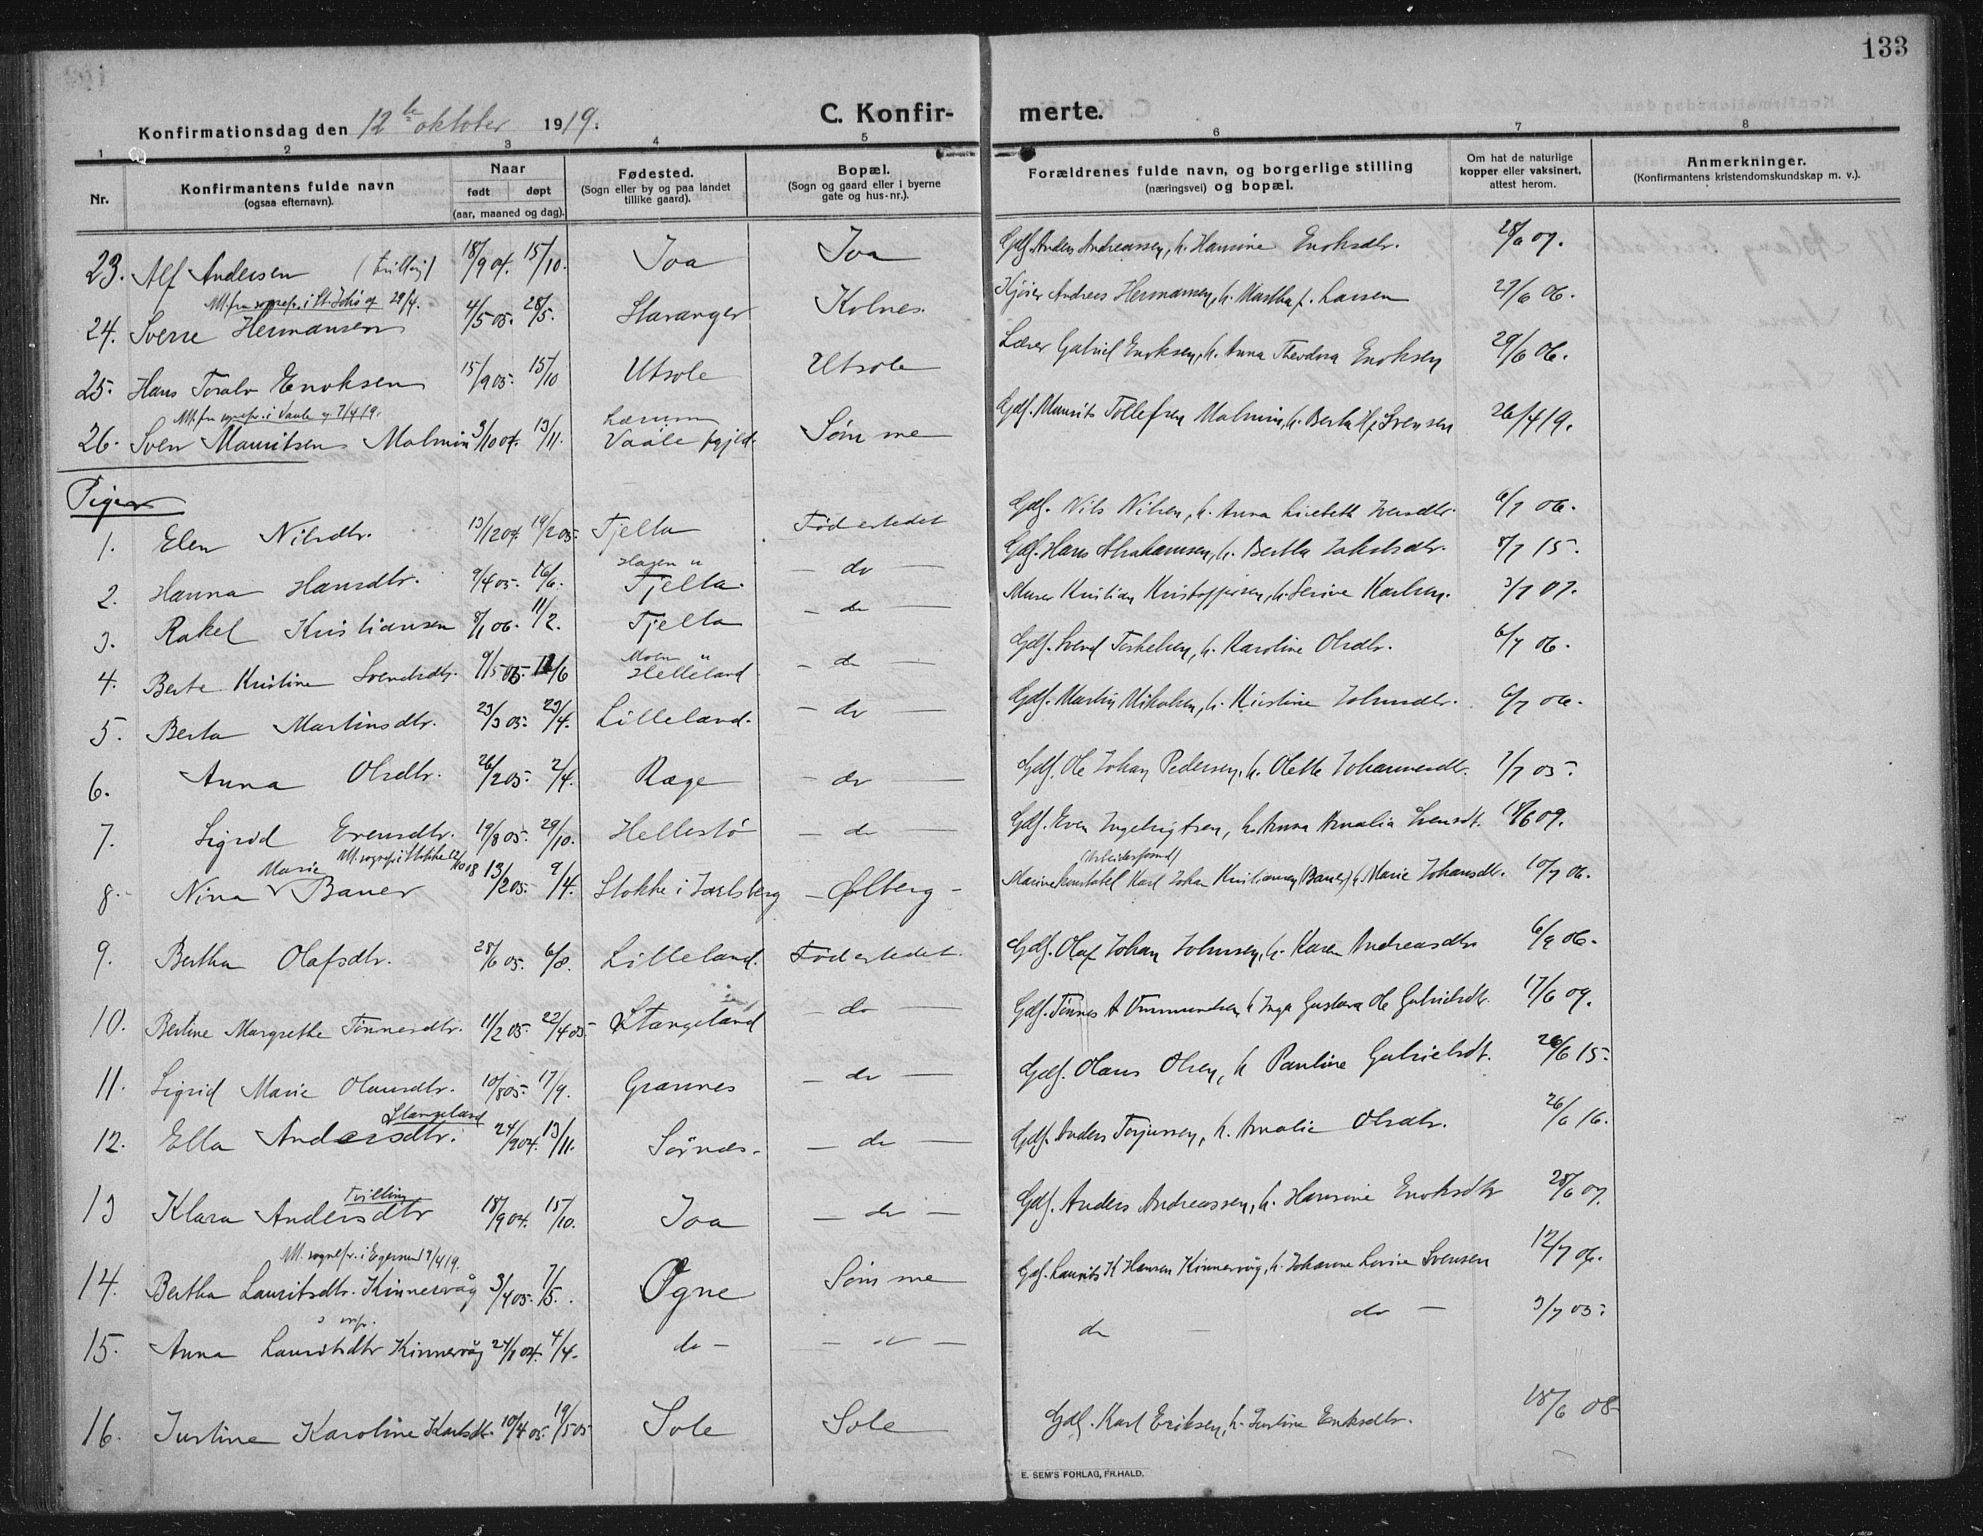 133
Konfirmationsdag den 12te oktober 1919. C. Konfir- merte.
1 2 3 4 5 6 7 8
Nr. Konfirmantens fulde navn (ogsaa efternavn). Naar født døpt (aar, maaned og dag). Fødested. (Sogn eller by og paa landet tillike gaard). Bopæl. (Sogn og gaard eller i byerne gate og hus-nr.). Forældrenes fulde navn, og borgerlige stilling (næringsvei) og bopæl. Om hat de naturlige kopper eller vaksinert, attest herom. Anmerkninger. (Konfirmantens kristendomskundskap m. v.).
23. Alf Andersen (tvilling) 18/9 04. 15/10. Joa Joa Gdf. Anders Andreassen, h. Hansine Enoksdtr. 28/6 07.
29/4.
24. Sverre Hermansen 4/5 05. 28/5. Stavanger Kolnes Andreas Hermansen, h. Martha f. Larsen 27/6 06.
25. Hans Toralv Enoksen 15/9 05. 15/10 Utsole Utsole Lærer Gabriel Enoksen, h. Anna Theodora Enoksen 29/6 06.
Att. fra sognepr. i Vaale 7/4 19.
26. Sven Mauritsen Malmin 3/10 04. 13/11. Vaale Sømme Gdf. Maurits Tollefsen Malmin, h. Bertha f. Svensen 26/4 19.
Piger
1. Elen Nilsdtr. 13/12 04. 19/2 05. Tjelta Fødestedet Gdf. Nils Nilsen, h. Anna Lisebeth Iversdtr. 6/7 06.
2. Hanna Hansdtr. 9/4 05. 16/6. Hagen Tjelta. - do - Gdf. Hans Abrahamsen, h. Bertha Jakobsdtr. 8/7 15.
3. Rakel Kristiansen 8/1 06. 11/2. Tjelta - do - Murer Kristian Kristoffersen, h. Serine Karlsen. 3/7 07.
4. Berte Kristine Svendsdtr. 9/5 05. 11/6 Helleland - do - Gdf. Svend Torkelsen, h. Karoline Olsdtr. 6/7 06.
5. Berta Martinsdtr. 23/3 05. 23/4. Lilleland. - do - Gdf. Martin Mikalsen, h. Kirstine Johnsdtr. 6/7 06.
6. Anna Olsdtr. 26/2 05. 2/4. Ræge - do - Gdf. Ole Johan Pedersen, h. Olette Johannesdtr. 7/7 05.
7. Sigrid Evensdtr. 19/8 05. 29/10. Hellestø - do - Gdf. Even Ingebrigtsen, h. Anna Amalia Svensdt. 18/6 09.
Marie
(Arbeidsformd)
8. Nina Bauer 13/2 05. 9/4. Stokke i Jarlsberg - Ølberg - Marinekonstabel Karl Johan Kristiansen (Bauer) h. Marie Johansdtr. 10/7 06.
9. Bertha Olafsdtr. 28/6 05. 6/8. Lilleland. Fødestedet. Gdf. Olaf Johan Johnsen, h. Karen Andreasdtr 6/9 06.
10. Bertine Margrethe Tønnesdtr. 11/2 05. 22/4 05. Stangeland - do - Gdf. Tønnes A Ommundsen h Inga Gustava Gabrielsdtr. 17/6 09.
11. Sigrid Marie Olausdtr. 10/8 05. 17/9. Grannes - do - Gdf. Olaus Olsen, h Pauline Gabrielsdt. 26/6 15.
Stangeland
12. Ella Andersdtr. 24/9 04. 13/11. Sørnes - do - Gdf. Anders Torjussen, h. Amalie Olsdtr. 26/6 16.
Tvilling
13 Klara Andersdtr 18/9 04. 15/10. Joa - do - Gdf. Anders Andreassen, h. Hansine Enoksdtr 28/6 07.
Att. sognepr. i Egersund 9/4 19.
14. Bertha Lauritsdtr. Kinnervåg 3/4 05. 7/5. Ogne Sømme Gdf. Laurits K Hansen Kinnervåg, h. Johanne Lovise Svensen 12/7 06.
15. Anna Lauritsdtr Kinnervåg 24/1 04. 4/4. do - - " - do - do - 3/7 05.
16. Justine Karoline Karlsdtr. 10/4 05. 19/5 05 Sole Sole Gdf. Karl Eriksen, h. Justine Eriksdtr. 18/6 08.
E. SEM'S FORLAG, FR.HALD.